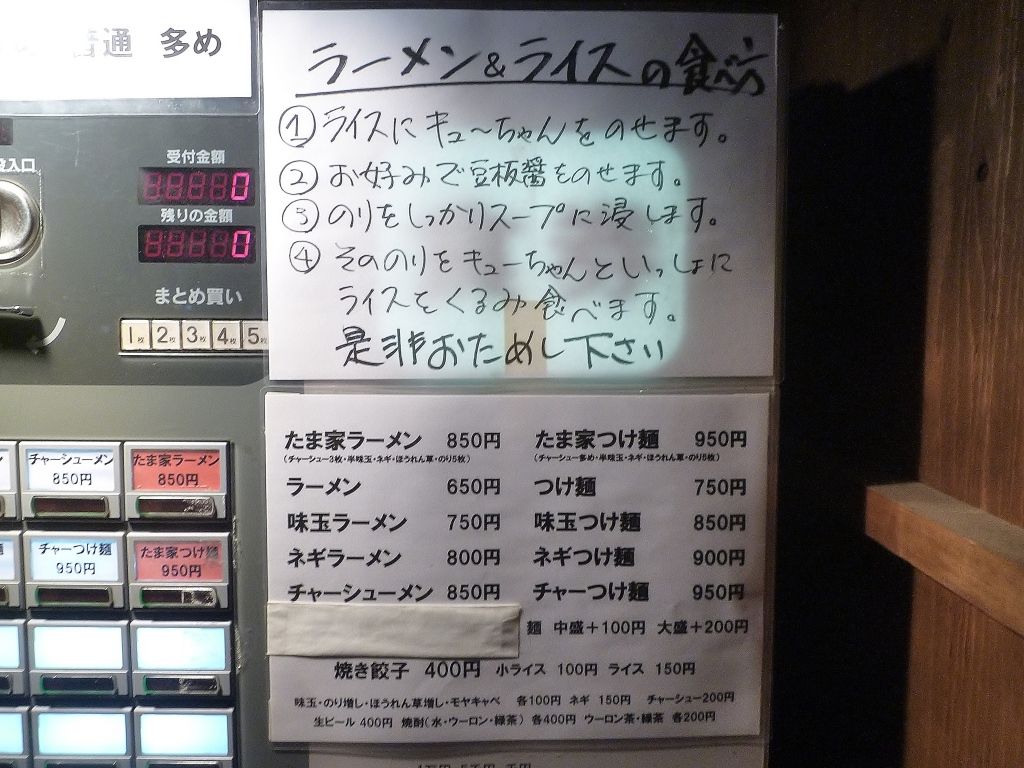 普通 多め
投入口
受付金額
0
残りの金額
0
まとめ買い
1枚 2枚 3枚 4枚 5枚
チャーシューメン
850円
たま家ラーメン
850円
チャーつけ麺
950円
たま家つけ麺
950円
ラーメン&ライスの食べ方
① ライスにキューちゃんをのせます。
② お好みで豆板醤をのせます。
③ のりをしっかりスープに浸します。
④ そののりをキューちゃんといっしょに
ライスをくるみ食べます。
是非おためし下さい
たま家ラーメン 850円 たま家つけ麺 950円
(チャーシュー3枚・半味玉・ネギ・ほうれん草・のり5枚) (チャーシュー多め・半味玉・ネギ・ほうれん草・のり5枚)
ラーメン 650円 つけ麺 750円
味玉ラーメン 750円 味玉つけ麺 850円
ネギラーメン 800円 ネギつけ麺 900円
チャーシューメン 850円 チャーつけ麺 950円
麺 中盛+100円 大盛+200円
焼き餃子 400円 小ライス 100円 ライス 150円
味玉・のり増し・ほうれん草増し・モヤキャベ 各100円 ネギ 150円 チャーシュー200円
生ビール 400円 焼酎(水・ウーロン・緑茶) 各400円 ウーロン茶・緑茶 各200円